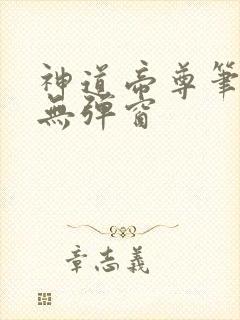 神道帝尊筆
無彈窗
章志義